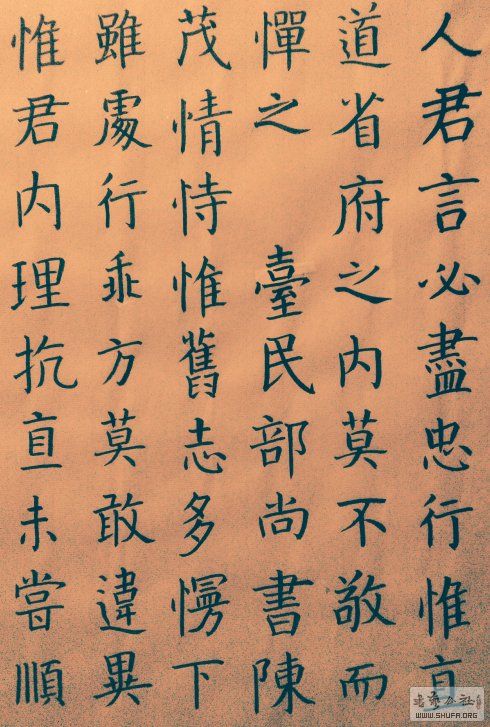 人君言必盡忠行惟直
道省府之内莫不敬而
憚之 臺民部尚書陳
茂情恃惟舊志多慢下
雖處行乖方莫敢違異
惟君内理抗直未嘗順
WWW.SHUFA.ORG